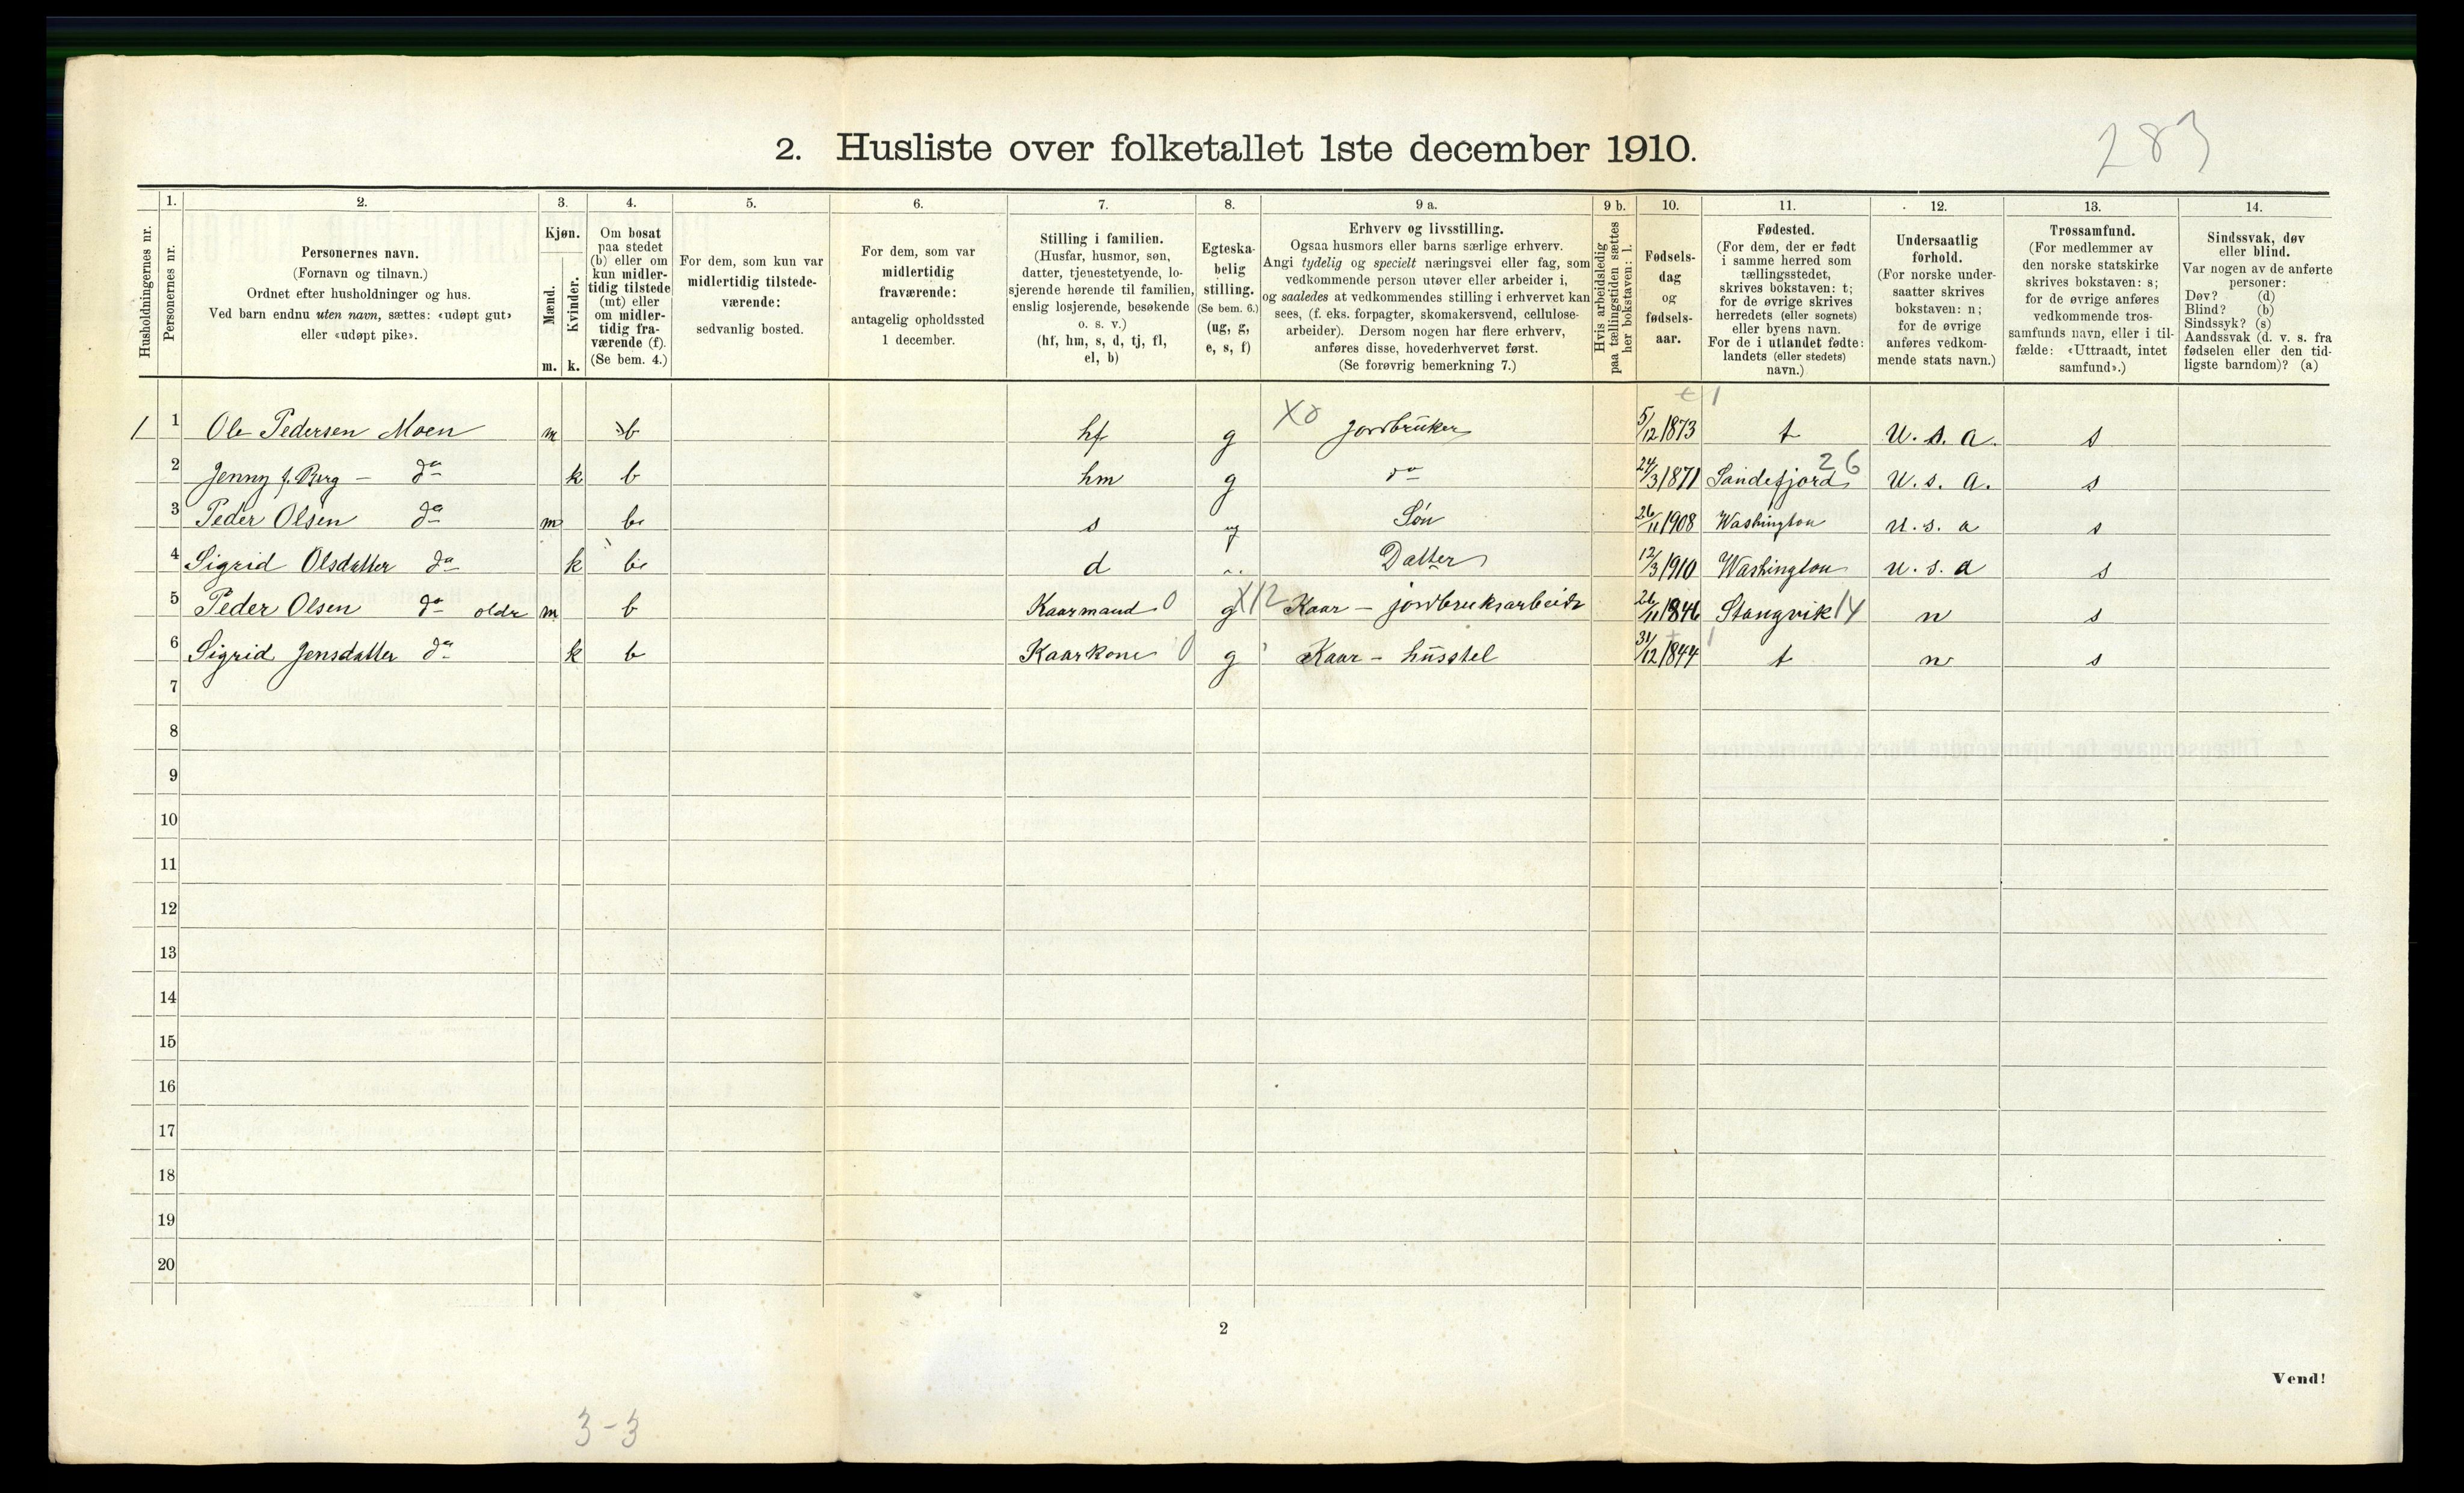 2. Husliste over folketallet 1ste december 1910.
283
Husholdningernes nr.
1.
Personernes nr.
2.
Personernes navn.
(Fornavn og tilnavn.)
Ordnet efter husholdninger og hus.
Ved barn endnu uten navn, sættes: «udøpt gut»
eller «udøpt pike».
3.
Kjøn.
Mænd.
Kvinder.
m. k.
4.
Om bosat
paa stedet
(b) eller om
kun midler-
tidig tilstede
(mt) eller
om midler-
tidig fra-
værende (f).
(Se bem. 4.)
5.
For dem, som kun var
midlertidig tilstede-
værende:
sedvanlig bosted.
6.
For dem, som var
midlertidig
fraværende:
antagelig opholdssted
1 december.
7.
Stilling i familien.
(Husfar, husmor, søn,
datter, tjenestetyende, lo-
sjerende hørende til familien,
enslig losjerende, besøkende
o. s. v.)
(hf, hm, s, d, tj, fl,
el, b)
8.
Egteska-
belig
stilling.
(Se bem. 6.)
(ug, g,
e, s, f)
9 a.
Erhverv og livsstilling.
Ogsaa husmors eller barns særlige erhverv.
Angi tydelig og specielt næringsvei eller fag, som
vedkommende person utøver eller arbeider i,
og saaledes at vedkommendes stilling i erhvervet kan
sees, (f. eks. forpagter, skomakersvend, cellulose-
arbeider). Dersom nogen har flere erhverv,
anføres disse, hovederhvervet først.
(Se forøvrig bemerkning 7.)
9 b.
Hvis arbeidsledig
paa tællingstiden sættes
her bokstaven: l.
10.
Fødsels-
dag
og
fødsels-
aar.
11.
Fødested.
(For dem, der er født
i samme herred som
tællingsstedet,
skrives bokstaven: t;
for de øvrige skrives
herredets (eller sognets)
eller byens navn.
For de i utlandet fødte:
landets (eller stedets)
navn.)
12.
Undersaatlig
forhold.
(For norske under-
saatter skrives
bokstaven: n;
for de øvrige
anføres vedkom-
mende stats navn.)
13.
Trossamfund.
(For medlemmer av
den norske statskirke
skrives bokstaven: s;
for de øvrige anføres
vedkommende tros-
samfunds navn, eller i til-
fælde: «Uttraadt, intet
samfund».)
14.
Sindssvak, døv
eller blind.
Var nogen av de anførte
personer:
Døv? (d)
Blind? (b)
Sindssyk? (s)
Aandssvak (d. v. s. fra
fødselen eller den tid-
ligste barndom)? (a)
1 1 Ole Pedersen Moen m b hf g X0 Jordbruker 5/12 1873 t 1 U. s. a. s
2 Jenny f. Berg — do k b hm g do 24/3 1871 Sandefjord 26 U. s. a. s
3 Peder Olsen do m b s ug Søn 26/11 1908 Washington u. s. a s
4 Sigrid Olsdatter do k b d Datter 12/3 1910 Washington u. s. a s
5 Peder Olsen do oldr m b Kaarmand 0 g X12 Kaar - jordbruksarbeide 26/11 1846 Stangvik 14 n s
6 Sigrid Jensdatter do k b Kaarkone 0 g Kaar - husstel 31/12 1844 t 1 n s
7
8
9
10
11
12
13
14
15
16
17
18
19
20
2
Vend!
3-3